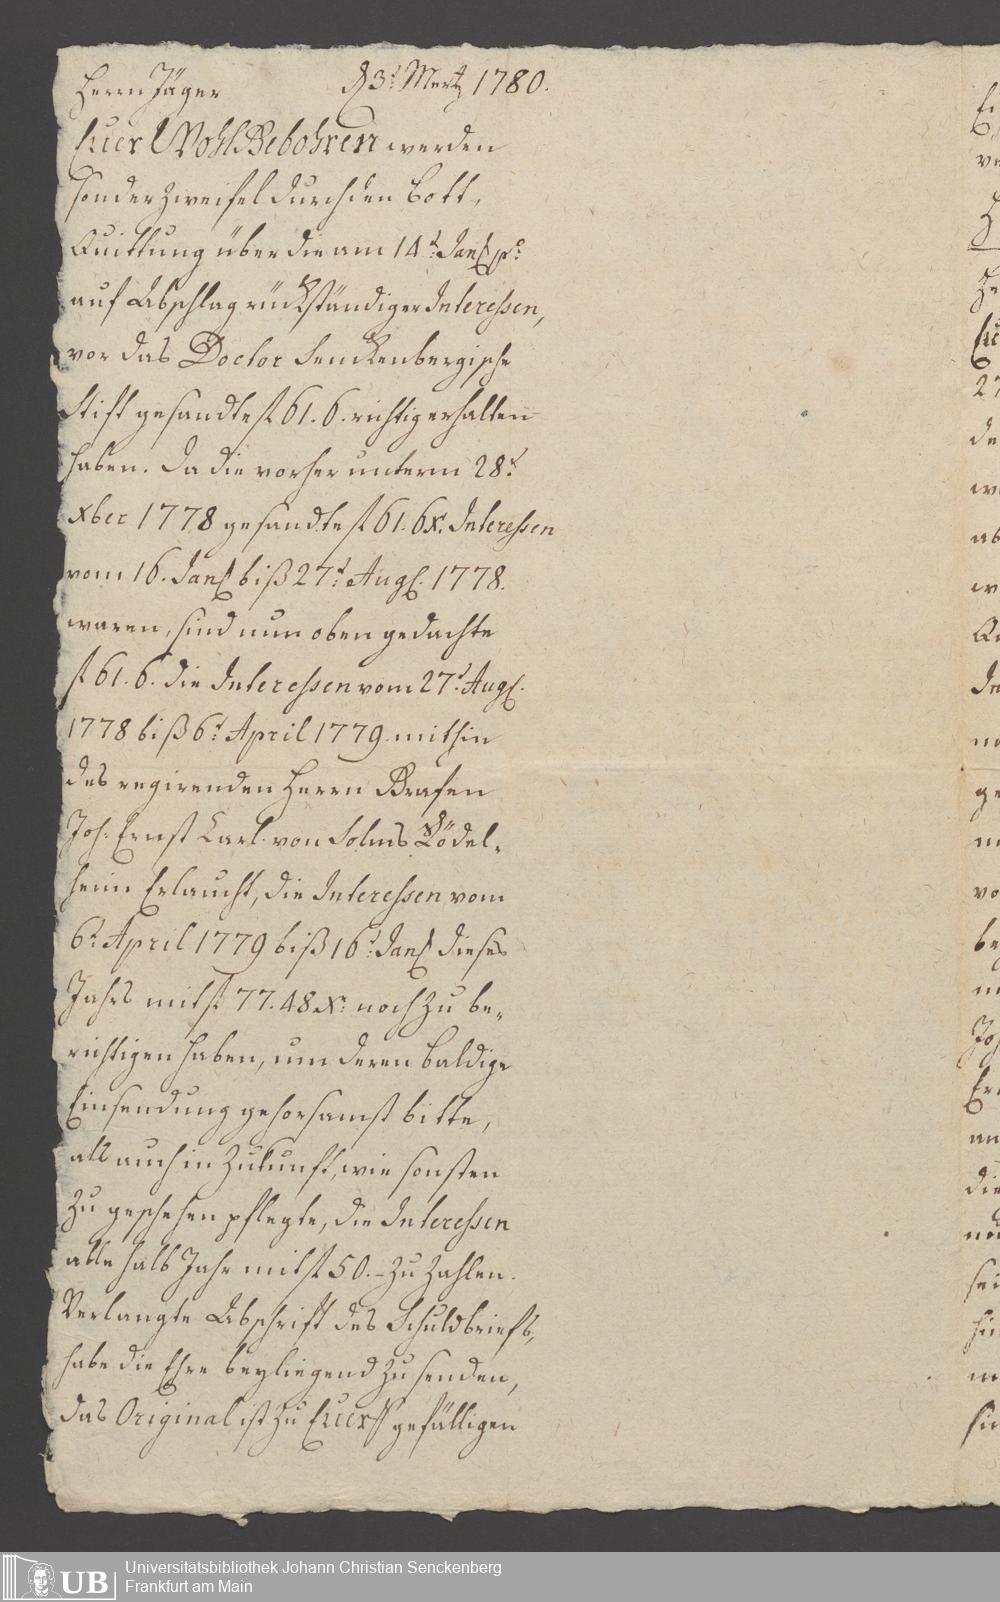 Herrn Jäger d 3t Mertz 1780.
Euer WohlGebohren werden
sonder Zweifel durch den Bott,
Quittung über die am 14t Jan. pr.
auf Abschlag rückständiger Interessen,
vor das Doctor Senckenbergische
Stift gesandte f 61. 6. richtig erhalten
haben. Da die vorher unterm 28t
xber 1778 gesandte f 61. 6x. Interessen
vom 16. Jan. biß 27t Aug. 1778.
waren, sind nun oben gedachte
f 61. 6. die Interessen vom 27t Aug.
1778 biß 6t April 1779. mithin
des regirenden Herrn Grafen
Joh. Ernst Carl von Solms Rödel„
heim Erlaucht, die Interessen vom
6t April 1779 biß 16t Jan. dieses
Jahrs mit f 77. 48 x. noch zu be„
richtigen haben, um deren baldige
Einsendung gehorsamst bitte,
als auch in Zukunft, wie sonsten
zu geschehen pflegte, die Interessen
alle halb Jahr mit f 50.– zu zahlen.
Verlangte Abschrift des Schuldbriefs,
habe die Ehre beyliegend zu senden,
das Original ist zu Euer gefälligen
UB
Universitätsbibliothek Johann Christian Senckenberg
Frankfurt am Main